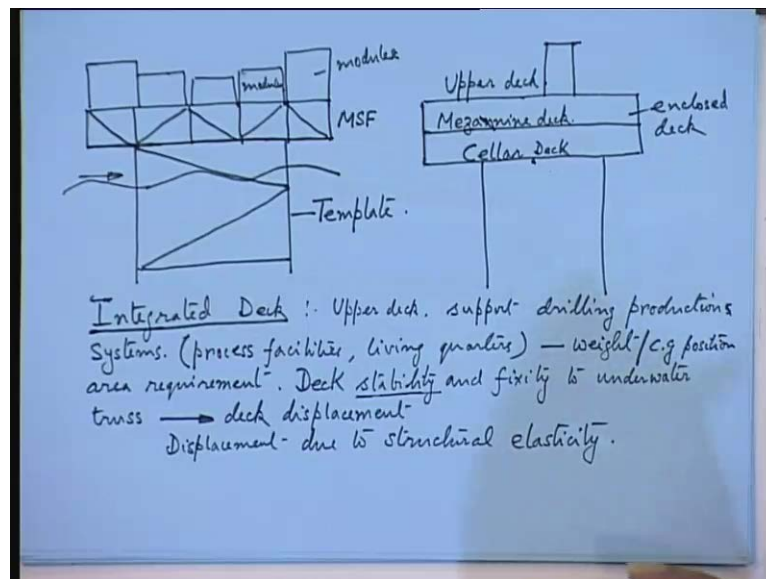 modules
module
MSF
Template.
Upper deck
Mezannine deck.
Cellar Deck
enclosed
deck
Integrated Deck :- Upper deck. support drilling productions
Systems. (process facilities, living quarters) — weight/c.g position
area requirement. Deck stability and fixity to underwater
truss → deck displacement
Displacement due to structural elasticity.